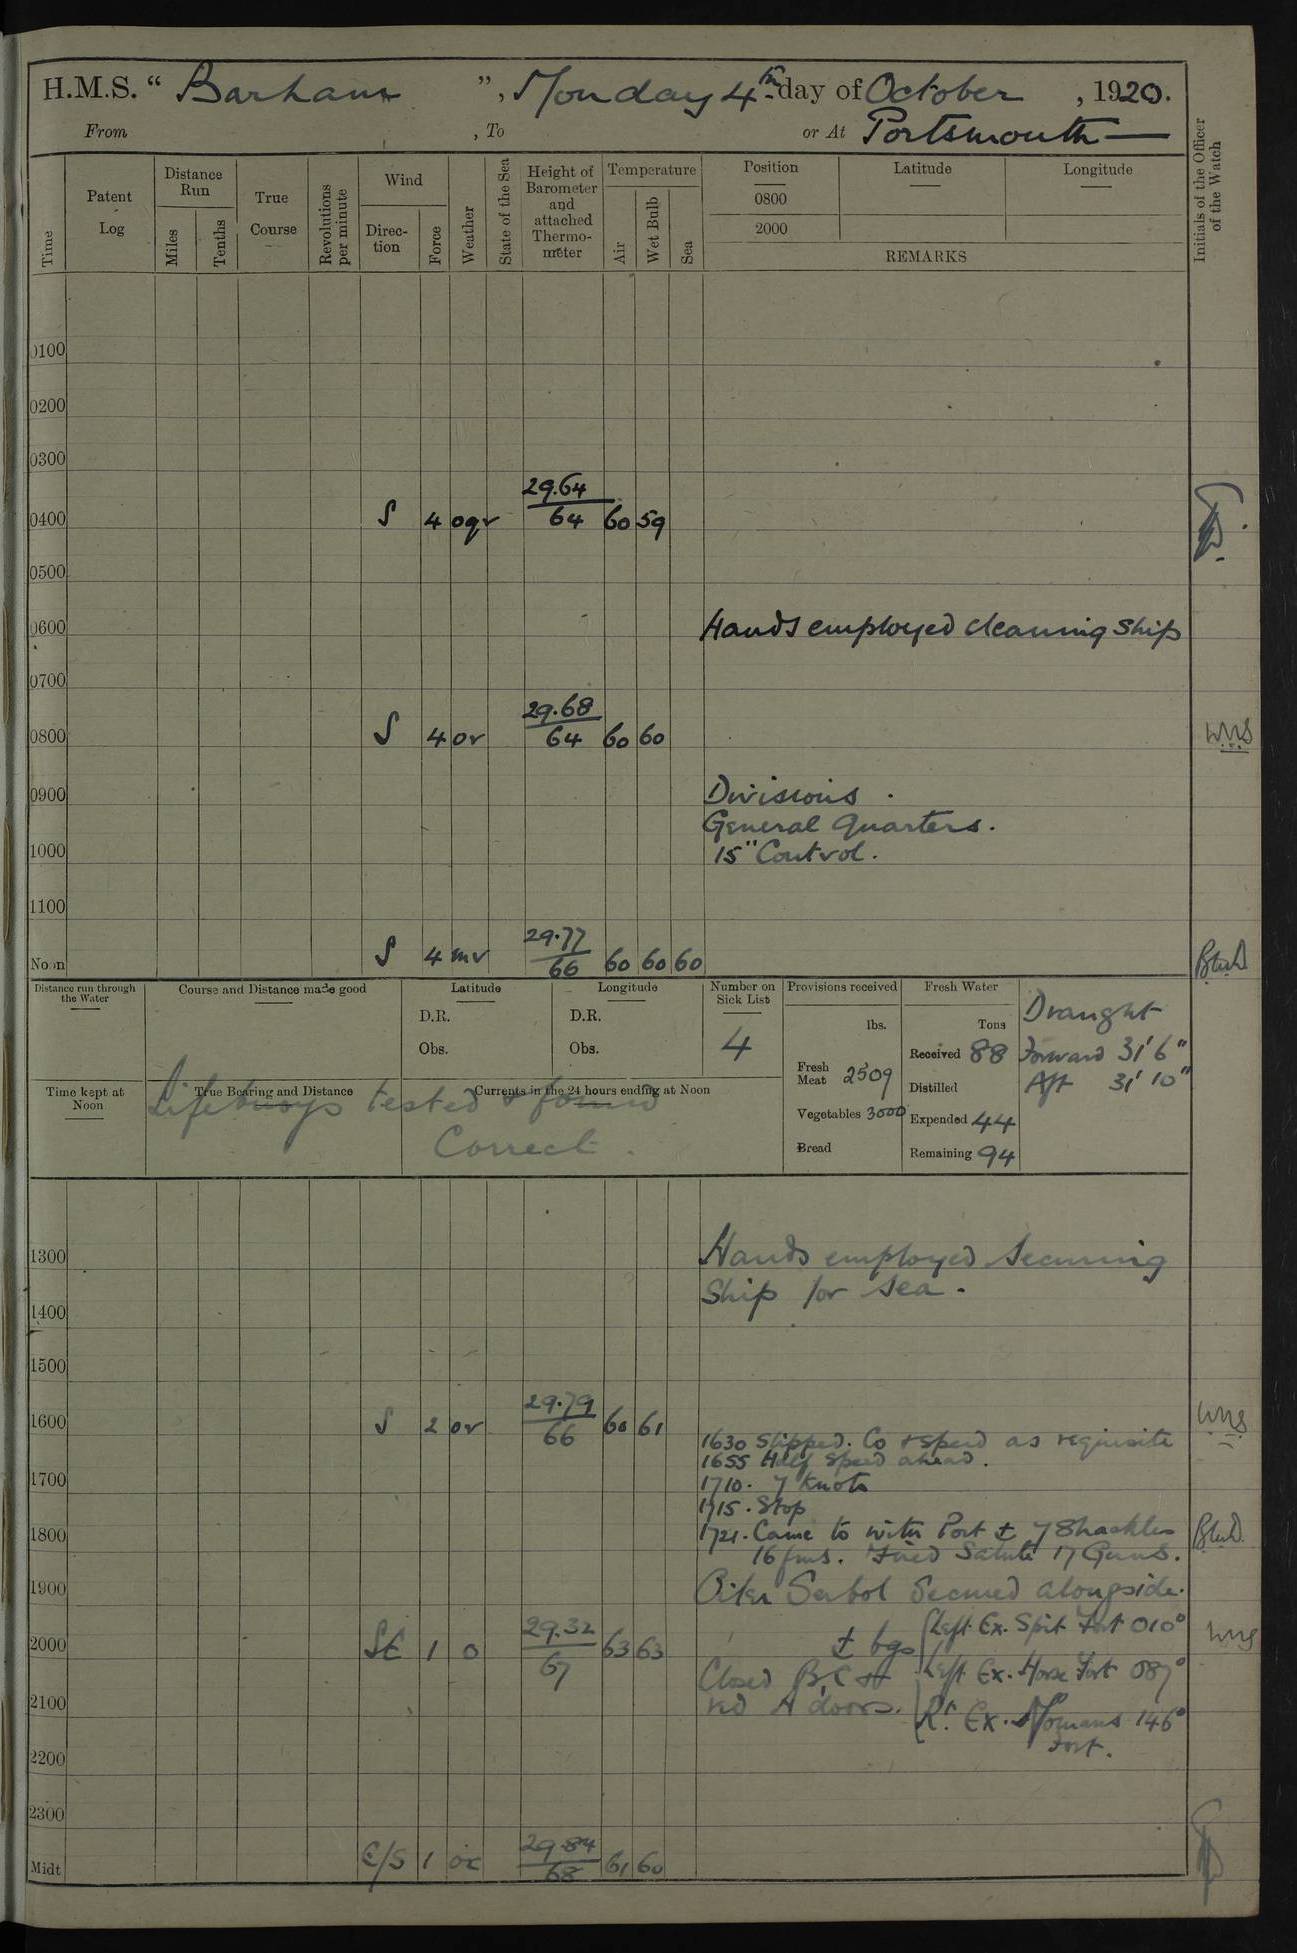 H.M.S. “ Barham ”, Monday 4th day of October , 1920.
From , To or At Portsmouth —
Time
Patent Log
Distance Run
Miles
Tenths
True Course
Revolutions per minute
Wind
Direc- tion
Force
Weather
State of the Sea
Height of Barometer and attached Thermo- meter
Temperature
Air
Wet Bulb
Sea
Position
0800
2000
Latitude
Longitude
REMARKS
Initials of the Officer of the Watch
0100
0200
0300
29.64
0400 S 4 64 60 59
0500
0600 Hands employed cleaning Ship
0700
29.68
0800 S 4 or 64 60 60 WMS
0900 Divisions .
General Quarters.
1000 15" Control.
1100
29.77
Noon S 4 mr 66 60 60 60
Distance run through the Water
Course and Distance made good
Latitude
D.R.
Obs.
Longitude
D.R.
Obs.
Number on Sick List
4
Provisions received
lbs.
Fresh Meat 2509
Vegetables 3000
Bread
Fresh Water
Tons
Received 88
Distilled
Expended 44
Remaining 94
Draught
Forward 31' 6"
Aft 31' 10"
Time kept at Noon
True Bearing and Distance
Currents in the 24 hours ending at Noon
Lifebuoys tested & found
Correct .
1300 Hands employed securing
Ship for sea .
1400
1500
29.79
1600 S 2 or 66 60 61 WMS
1630 Slipped. Co & speed as requisite
1655 Half speed ahead.
1700
1710. 7 Knots
1715. Stop
1800 1721. Came to with Port ± 7 Shackles
16 fms. Fired Salute 17 Guns.
1900 Oiler Serbol Secured alongside.
29.32
2000 SE 1 o 67 63 63 WMS
± bgs Left Ex. Spit Fort 010°
Left Ex. Horse Fort 087°
Rt. Ex. Nomans 146°
Fort.
Closed B, C &
red A doors.
2100
2200
2300
29.84
Midt E/S 1 68 61 60